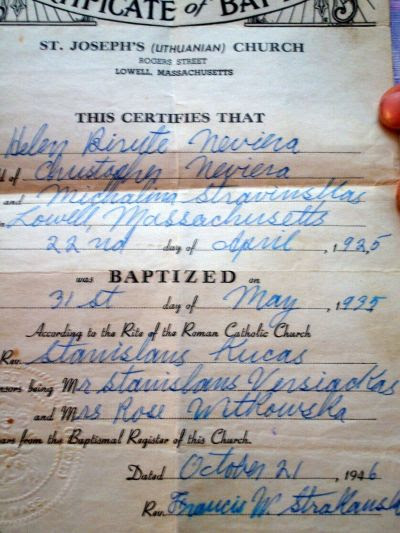 CERTIFICATE of BAPTISM
ST. JOSEPH'S (LITHUANIAN) CHURCH
ROGERS STREET
LOWELL, MASSACHUSETTS
THIS CERTIFIES THAT
Helen Birute Neviera
d of Christopher Neviera
and Michalina Stravinskas
Lowell, Massachusetts
22nd day of April, 1925
was BAPTIZED on
31st day of May, 1925
According to the Rite of the Roman Catholic Church
Rev. Stanislaus Kucas
nsors being Mr Stanislaus Versiackas
and Mrs Rose Witkowska
ears from the Baptismal Register of this Church.
Dated October 21, 1946
Rev. Francis W Strakausk